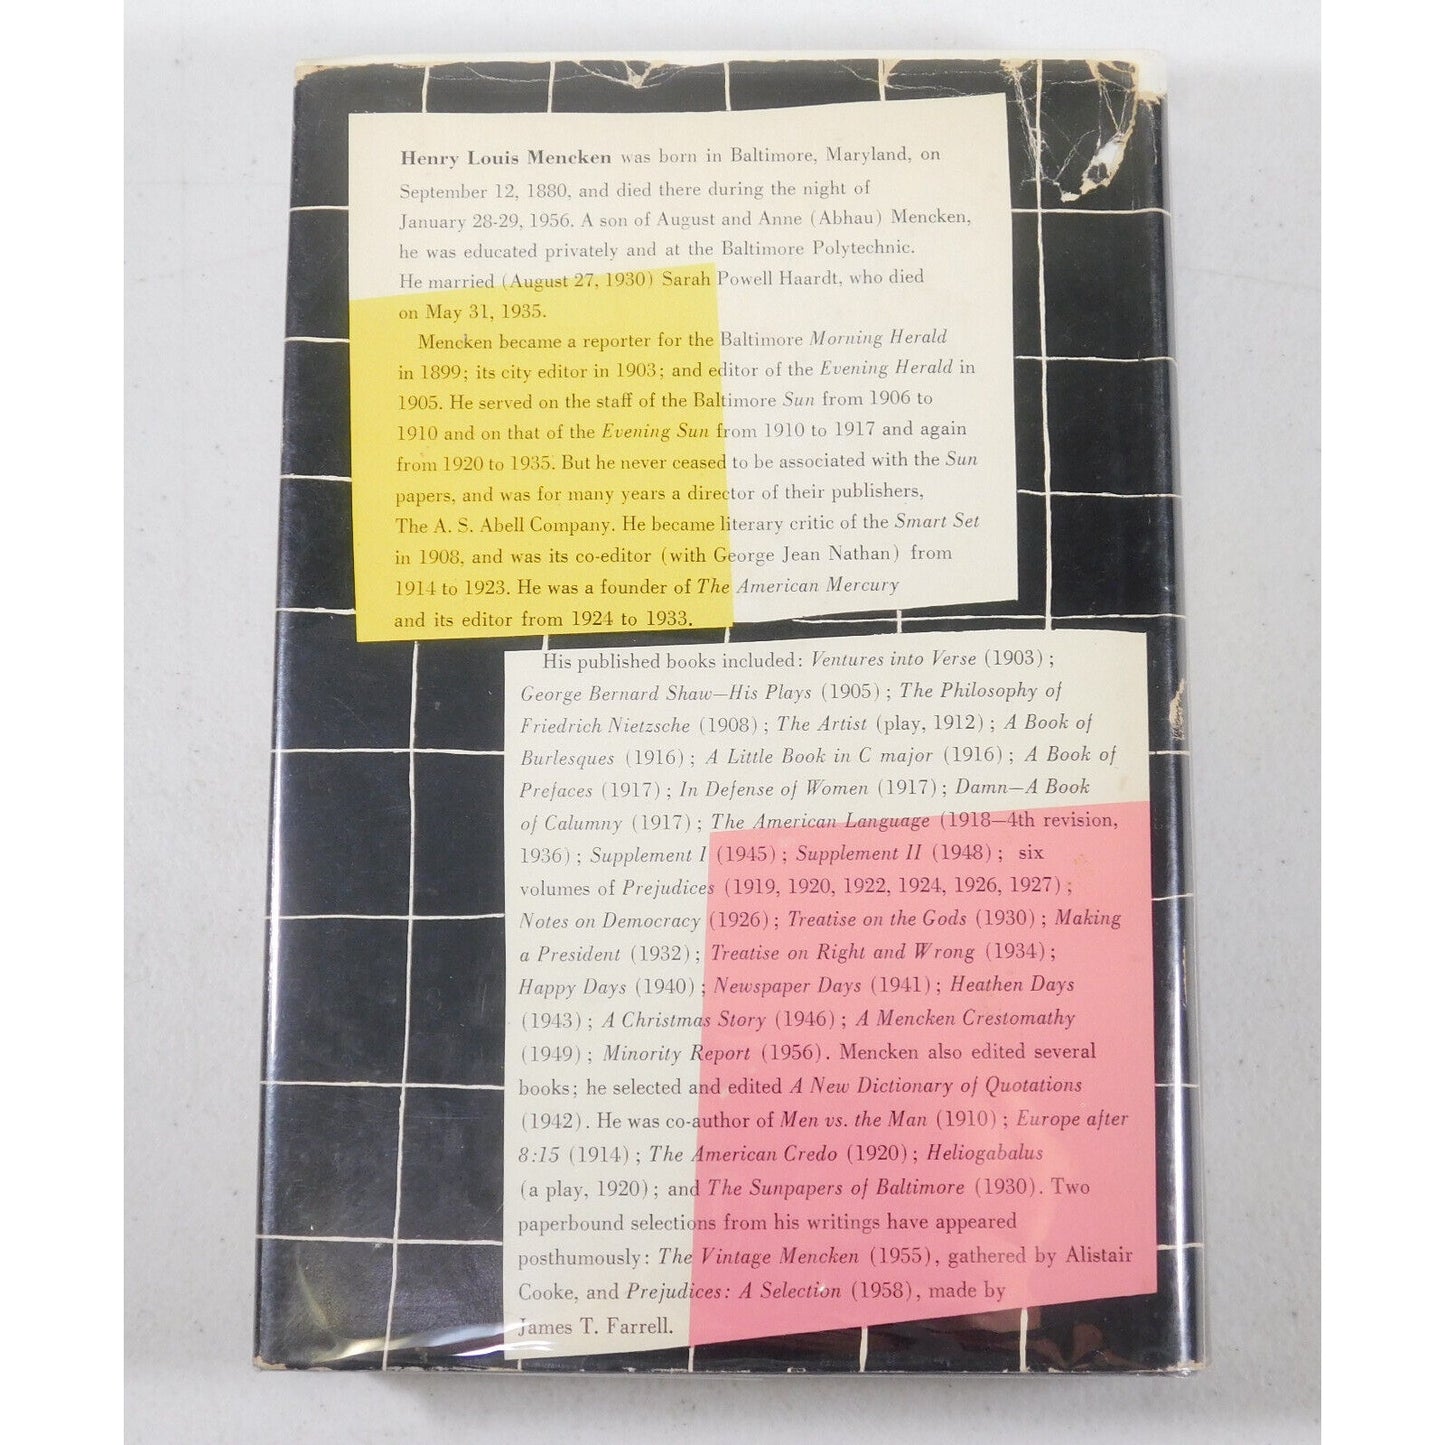 Henry Louis Mencken was born in Baltimore, Maryland, on
September 12, 1880, and died there during the night of
January 28-29, 1956. A son of August and Anne (Abhau) Mencken,
he was educated privately and at the Baltimore Polytechnic.
He married (August 27, 1930) Sarah Powell Haardt, who died
on May 31, 1935.
Mencken became a reporter for the Baltimore Morning Herald
in 1899; its city editor in 1903; and editor of the Evening Herald in
1905. He served on the staff of the Baltimore Sun from 1906 to
1910 and on that of the Evening Sun from 1910 to 1917 and again
from 1920 to 1935. But he never ceased to be associated with the Sun
papers, and was for many years a director of their publishers,
The A. S. Abell Company. He became literary critic of the Smart Set
in 1908, and was its co-editor (with George Jean Nathan) from
1914 to 1923. He was a founder of The American Mercury
and its editor from 1924 to 1933.
His published books included: Ventures into Verse (1903);
George Bernard Shaw—His Plays (1905); The Philosophy of
Friedrich Nietzsche (1908); The Artist (play, 1912); A Book of
Burlesques (1916); A Little Book in C major (1916); A Book of
Prefaces (1917); In Defense of Women (1917); Damn—A Book
of Calumny (1917); The American Language (1918—4th revision,
1936); Supplement I (1945); Supplement II (1948); six
volumes of Prejudices (1919, 1920, 1922, 1924, 1926, 1927);
Notes on Democracy (1926); Treatise on the Gods (1930); Making
a President (1932); Treatise on Right and Wrong (1934);
Happy Days (1940); Newspaper Days (1941); Heathen Days
(1943); A Christmas Story (1946); A Mencken Crestomathy
(1949); Minority Report (1956). Mencken also edited several
books; he selected and edited A New Dictionary of Quotations
(1942). He was co-author of Men vs. the Man (1910); Europe after
8:15 (1914); The American Credo (1920); Heliogabalus
(a play, 1920); and The Sunpapers of Baltimore (1930). Two
paperbound selections from his writings have appeared
posthumously: The Vintage Mencken (1955), gathered by Alistair
Cooke, and Prejudices: A Selection (1958), made by
James T. Farrell.